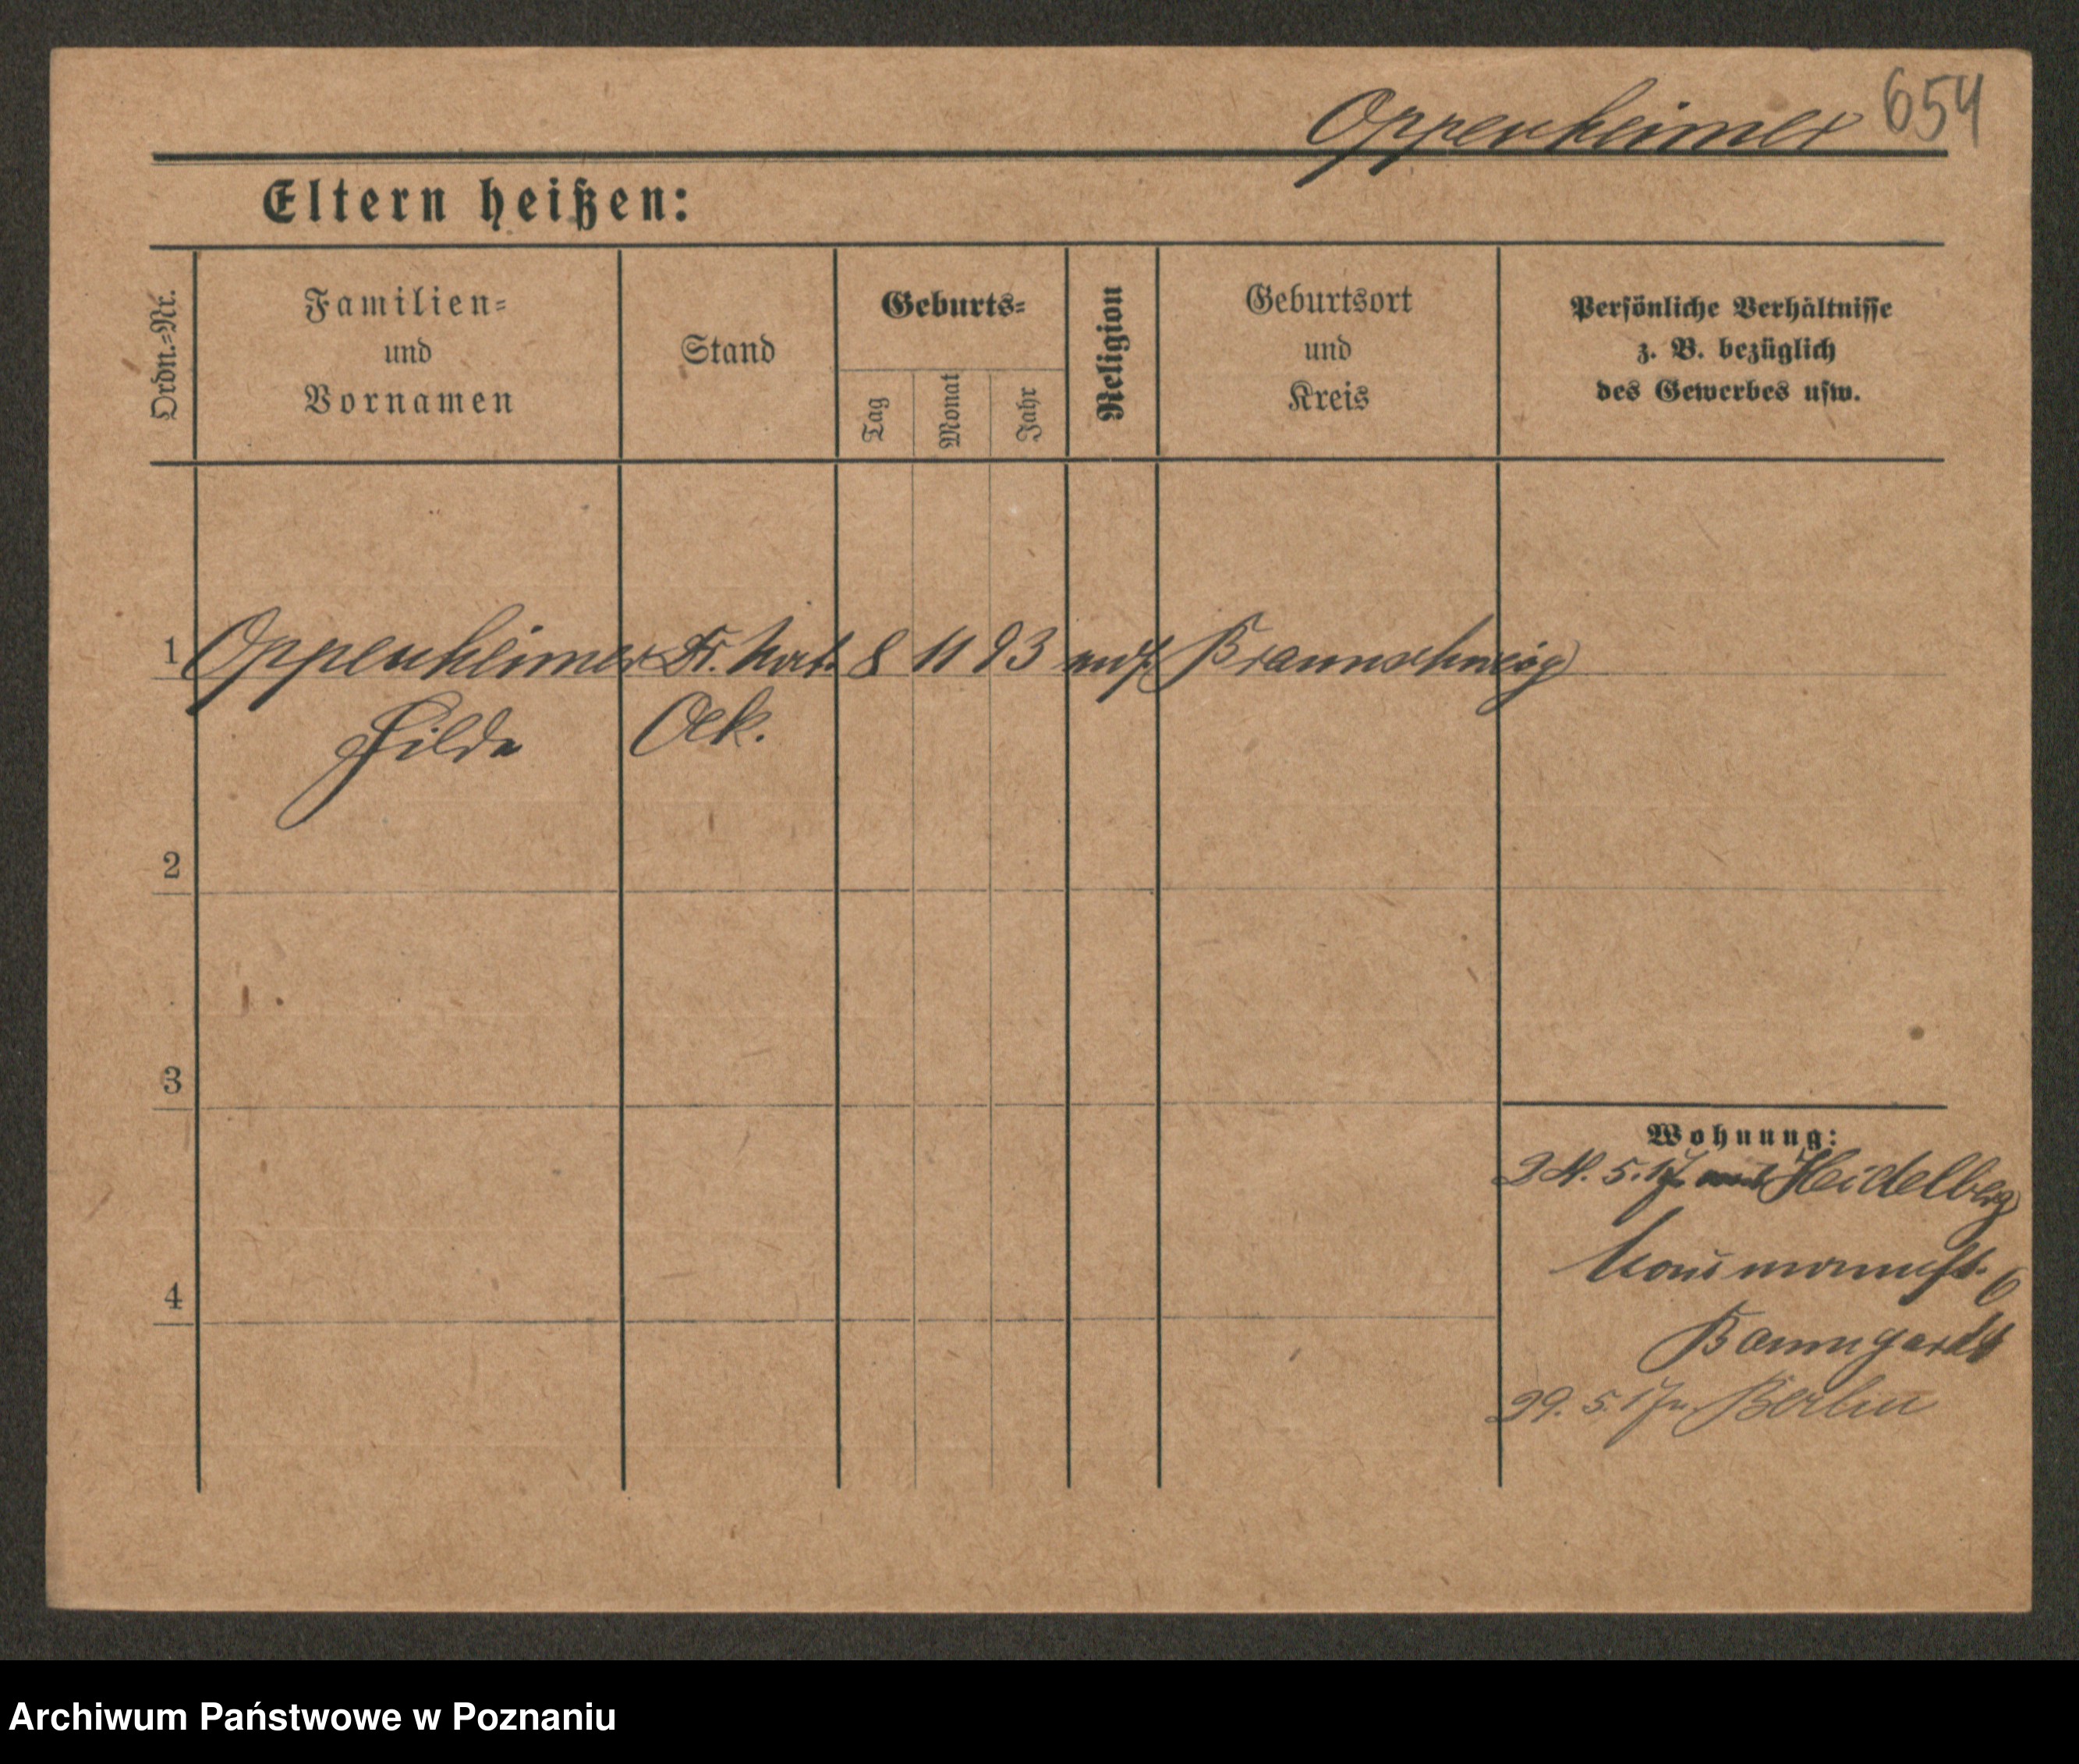 Oppenheimer 654
Eltern heißen:
Ordn.=Nr.
Familien=
und
Vornamen
Stand
Geburts=
Tag
Monat
Jahr
Religion
Geburtsort
und
Kreis
Persönliche Verhältnisse
z. B. bezüglich
des Gewerbes usw.
1 Oppenheimer Dr. 8 11 93 Braunschweig
Hilde Oek.
2
3
4
Wohnung:
24. 5. 17. Heidelberg
6
Baumgardt
29. 5. 17 n. Berlin
Archiwum Państwowe w Poznaniu